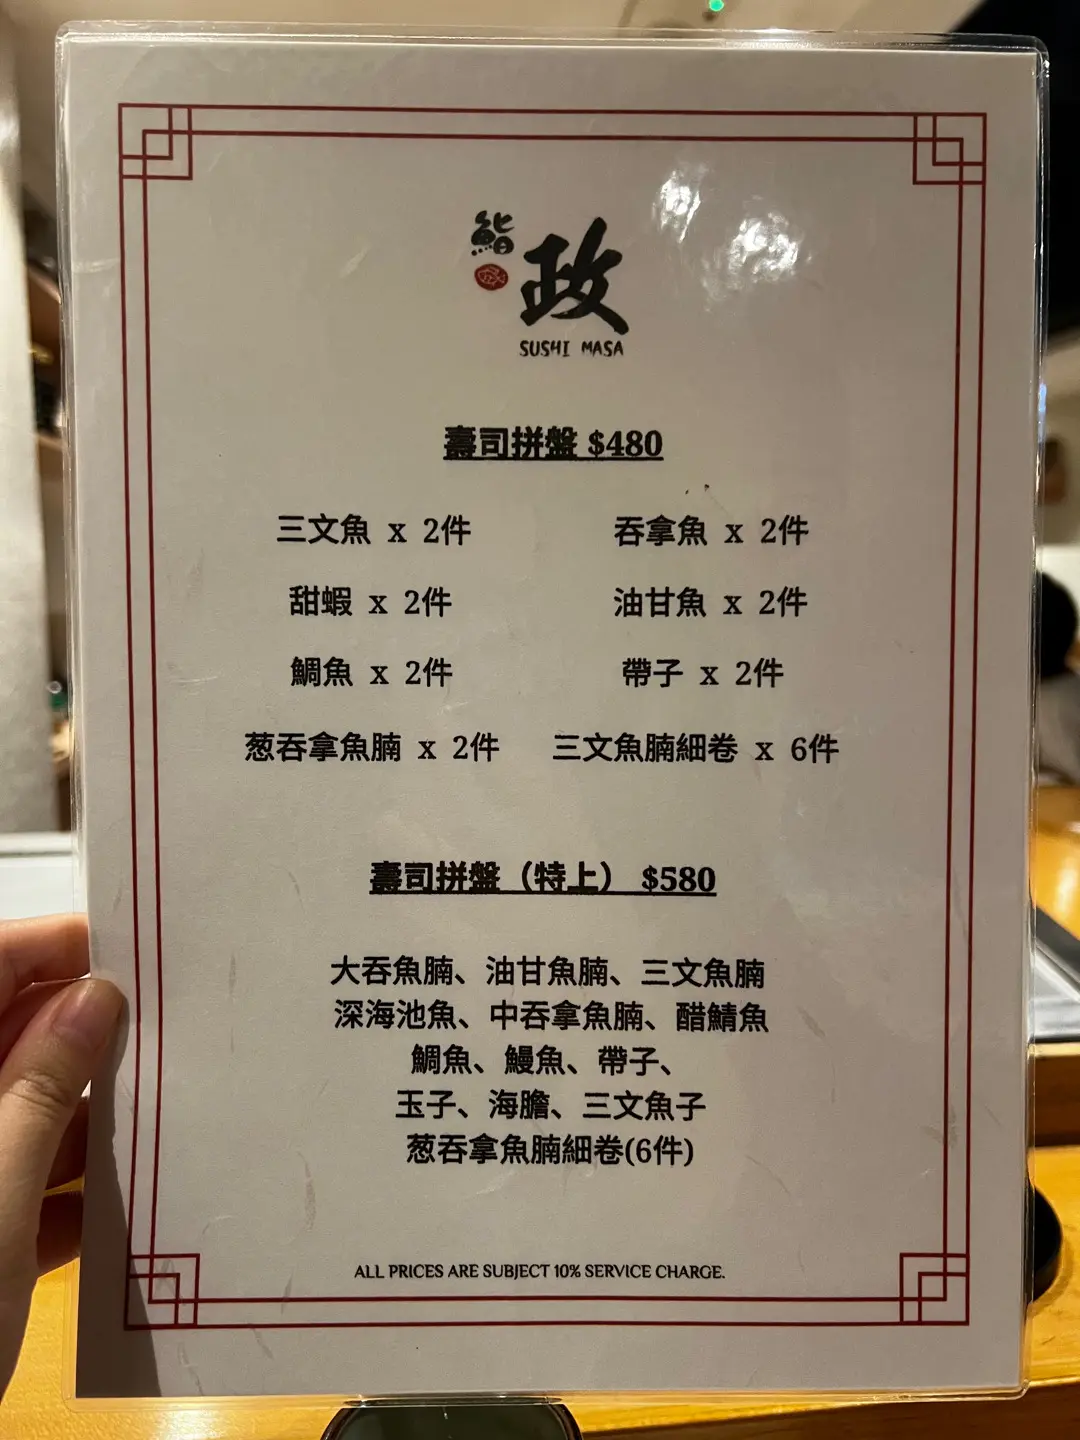 鮨
政
SUSHI MASA
壽司拼盤 $480
三文魚 x 2件 吞拿魚 x 2件
甜蝦 x 2件 油甘魚 x 2件
鯛魚 x 2件 帶子 x 2件
葱吞拿魚腩 x 2件 三文魚腩細卷 x 6件
壽司拼盤（特上） $580
大吞魚腩、油甘魚腩、三文魚腩
深海池魚、中吞拿魚腩、醋鯖魚
鯛魚、鰻魚、帶子、
玉子、海膽、三文魚子
葱吞拿魚腩細卷(6件)
ALL PRICES ARE SUBJECT 10% SERVICE CHARGE.